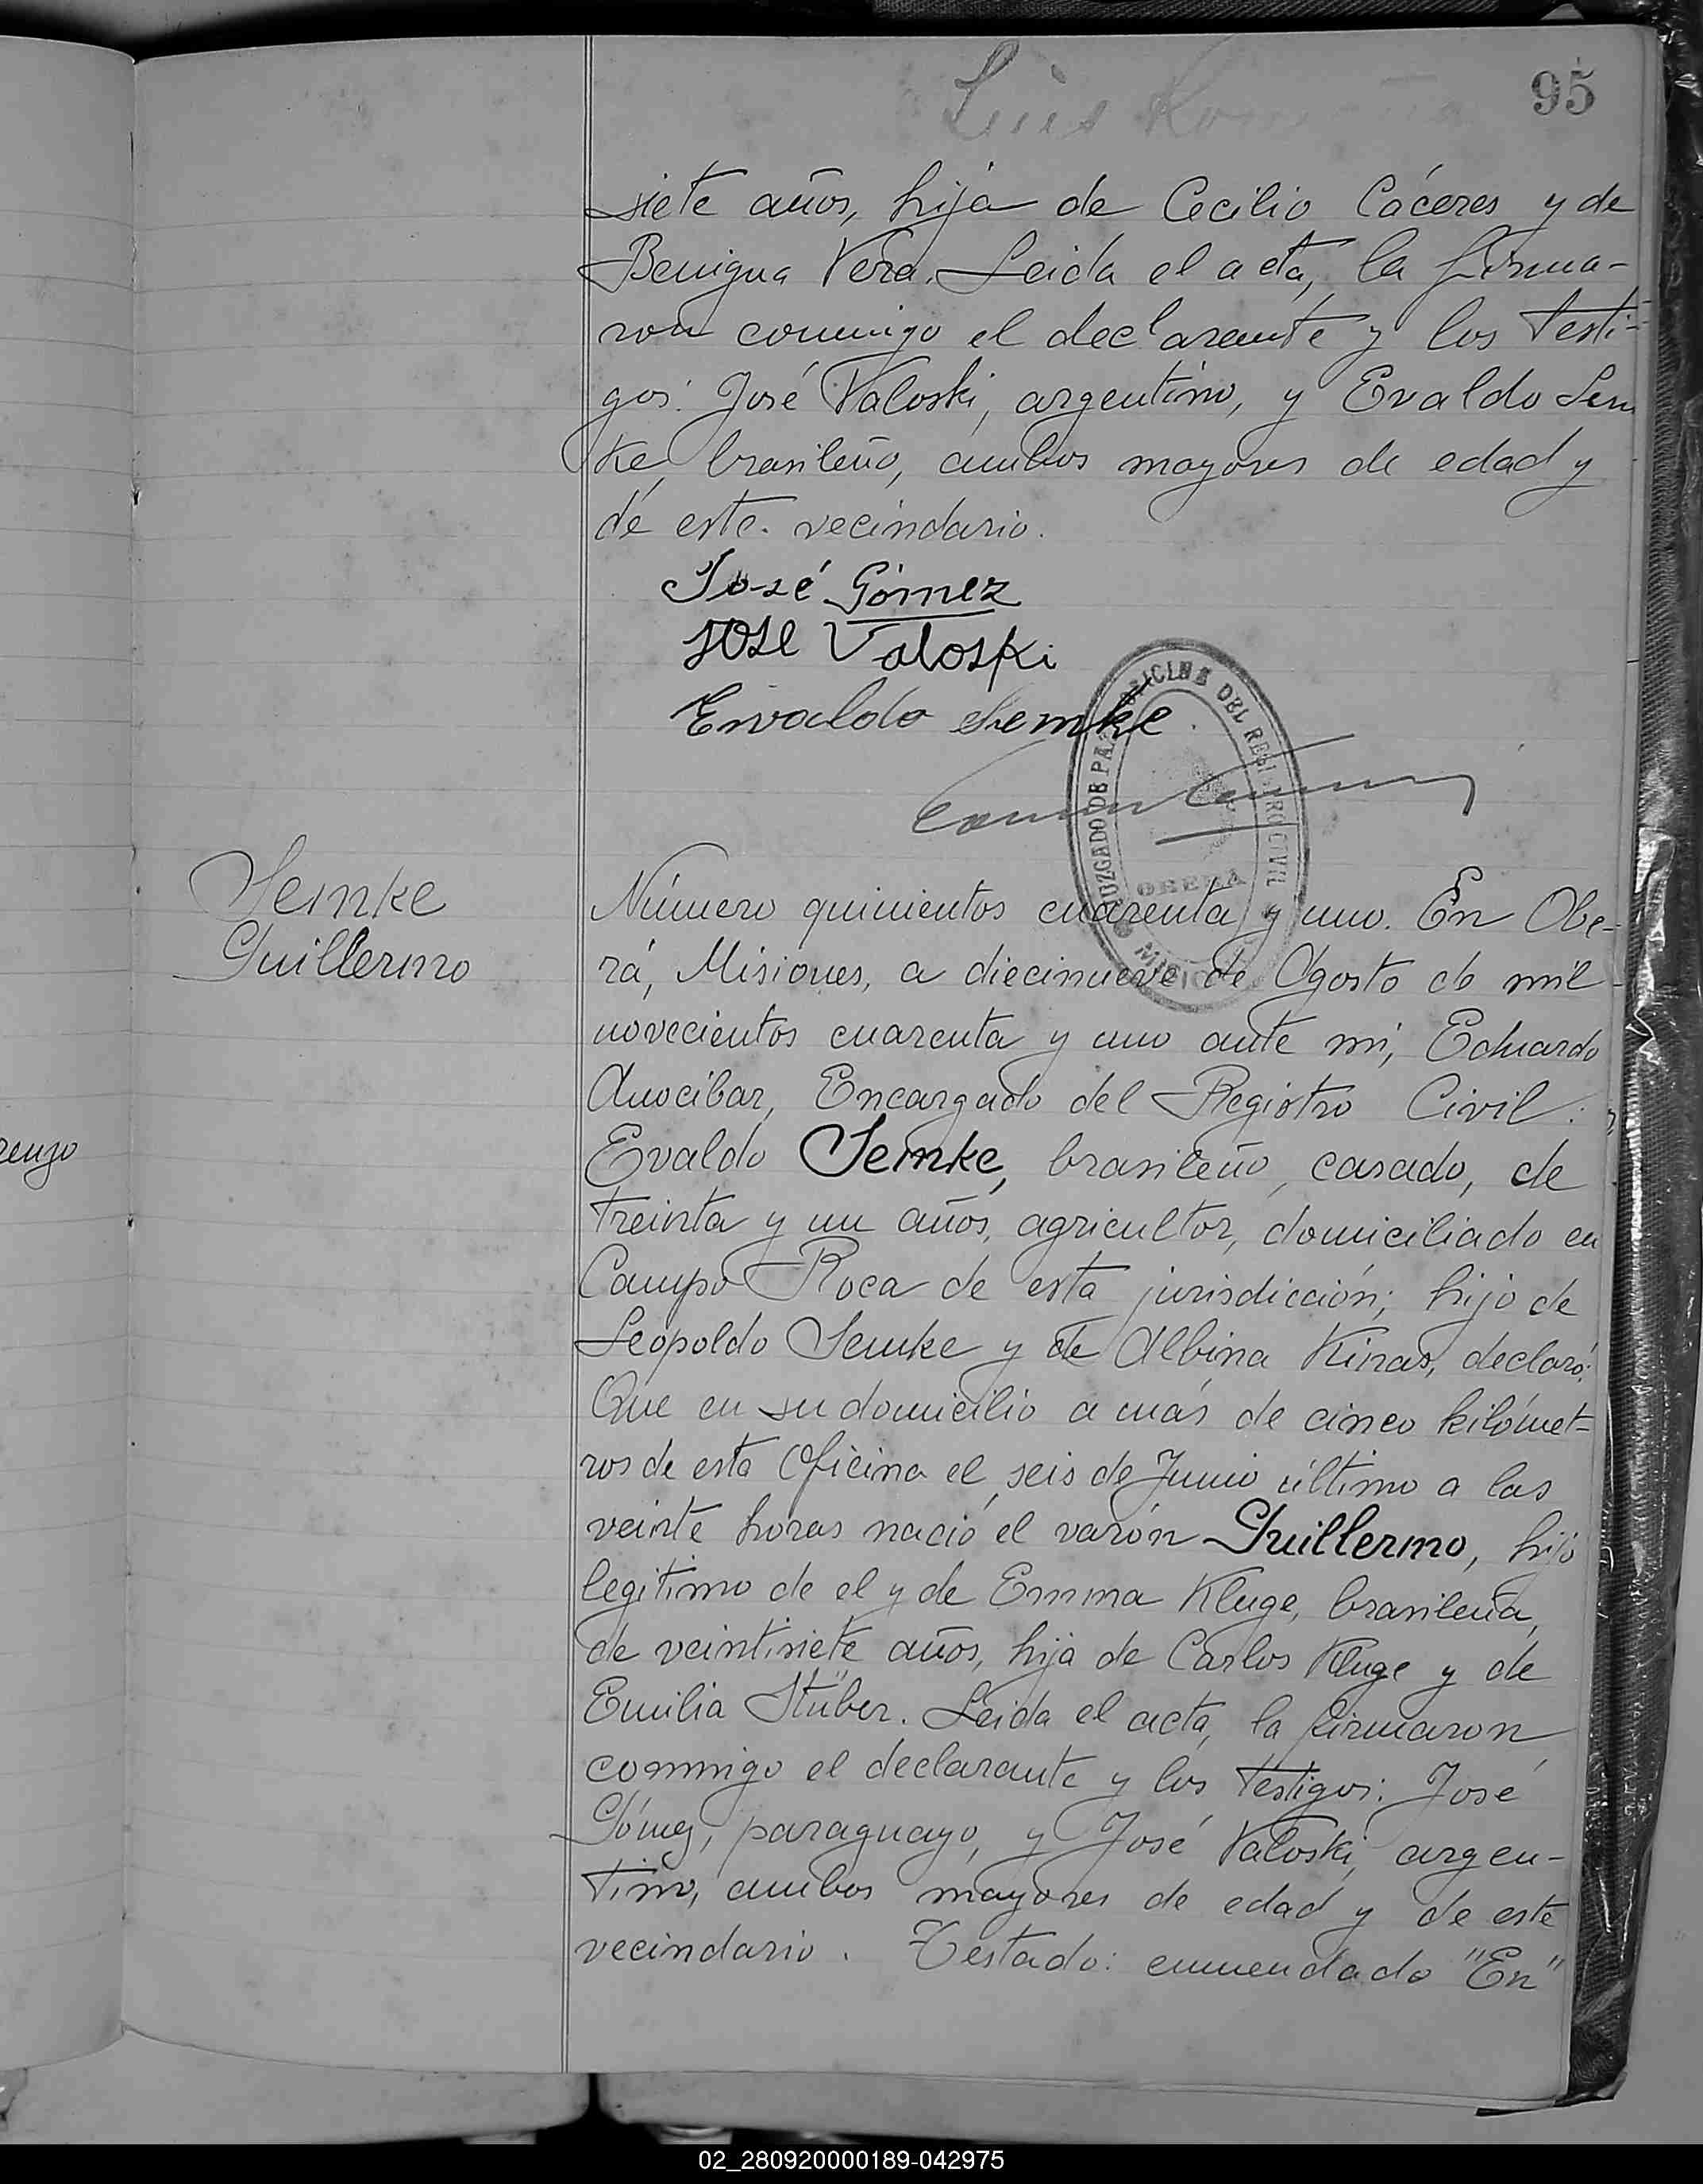 95
Luis
siete años, hija de Cecilio Cáceres y de
Benigna Vera. Leida el acta, la firma-
ron conmigo el declarante y los testi-
gos: José Valoski, argentino, y Evaldo Sem
ke, brasileño, ambos mayores de edad y
de este vecindario.
José Gómez
José Valoski
Ervaldo Semke
JUZGADO DE PAZ OFICINA DEL REGISTRO CIVIL
OBERA
MISIONES
Semke
Guillermo
Número quinientos cuarenta y uno. En Obe-
rá, Misiones, a diecinueve de Agosto de mil
novecientos cuarenta y uno ante mi, Eduardo
Anocibar, Encargado del Registro Civil:
Evaldo Semke, brasileño, casado, de
treinta y un años, agricultor, domiciliado en
Campo Roca de esta jurisdicción; hijo de
Leopoldo Semke y de Albina Kinas, declaró:
Que en su domicilio a más de cinco kilómet-
ros de esta Oficina el seis de Junio último a las
veinte horas nació el varón Guillermo, hijo
legitimo de el y de Emma Kluge, brasileña,
de veintisiete años, hija de Carlos Kluge y de
Emilia Stüber. Leida el acta, la firmaron
conmigo el declarante y los testigos: José
Gómez, paraguayo, y José Valoski, argen-
tino, ambos mayores de edad y de este
vecindario. Testado: enmendado "En"
renzo
02_280920000189-042975